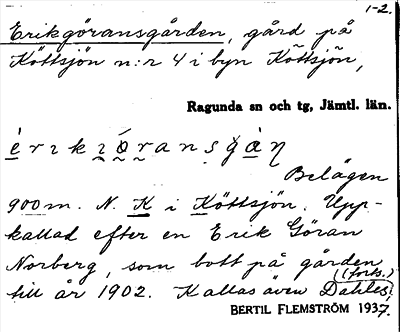 1-2.
Erikgöransgården, gård på
Köttsjön n:r 4 i byn Köttsjön,
Ragunda sn och tg, Jämtl. län.
Belägen
900 m. N. K i Köttsjön. Upp-
kallad efter en Erik Göran
Norberg, som bott på gården
till år 1902. Kallas även Dahles,
((forts.)
BERTIL FLEMSTRÖM 1937.